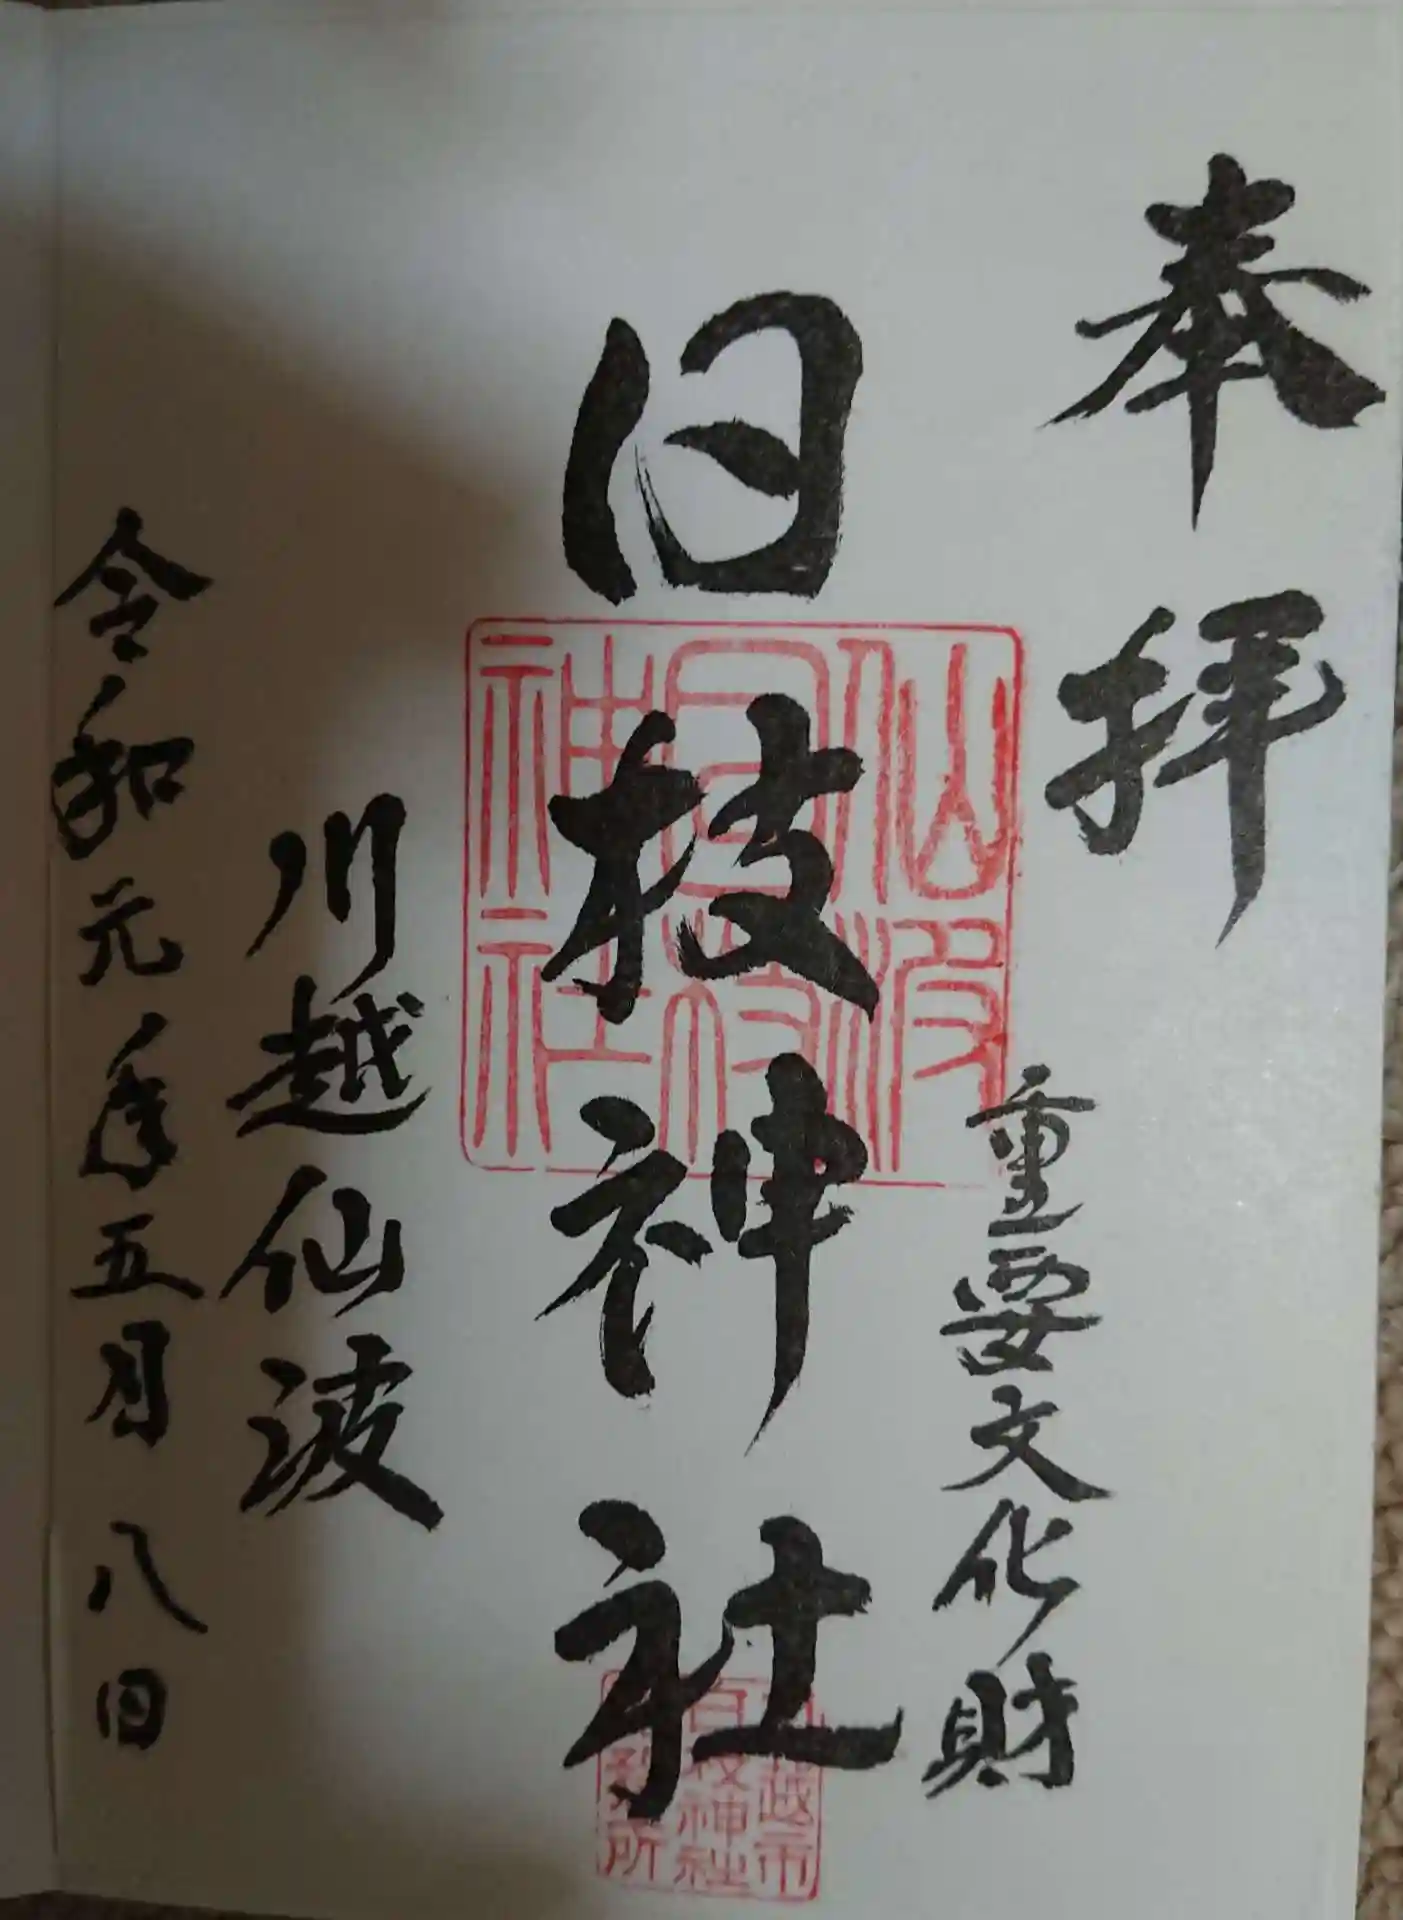 奉拝
重要文化財
日枝神社
川越仙波
令和元年五月八日
仙波
日枝
神社
川越市
日枝神社
務所